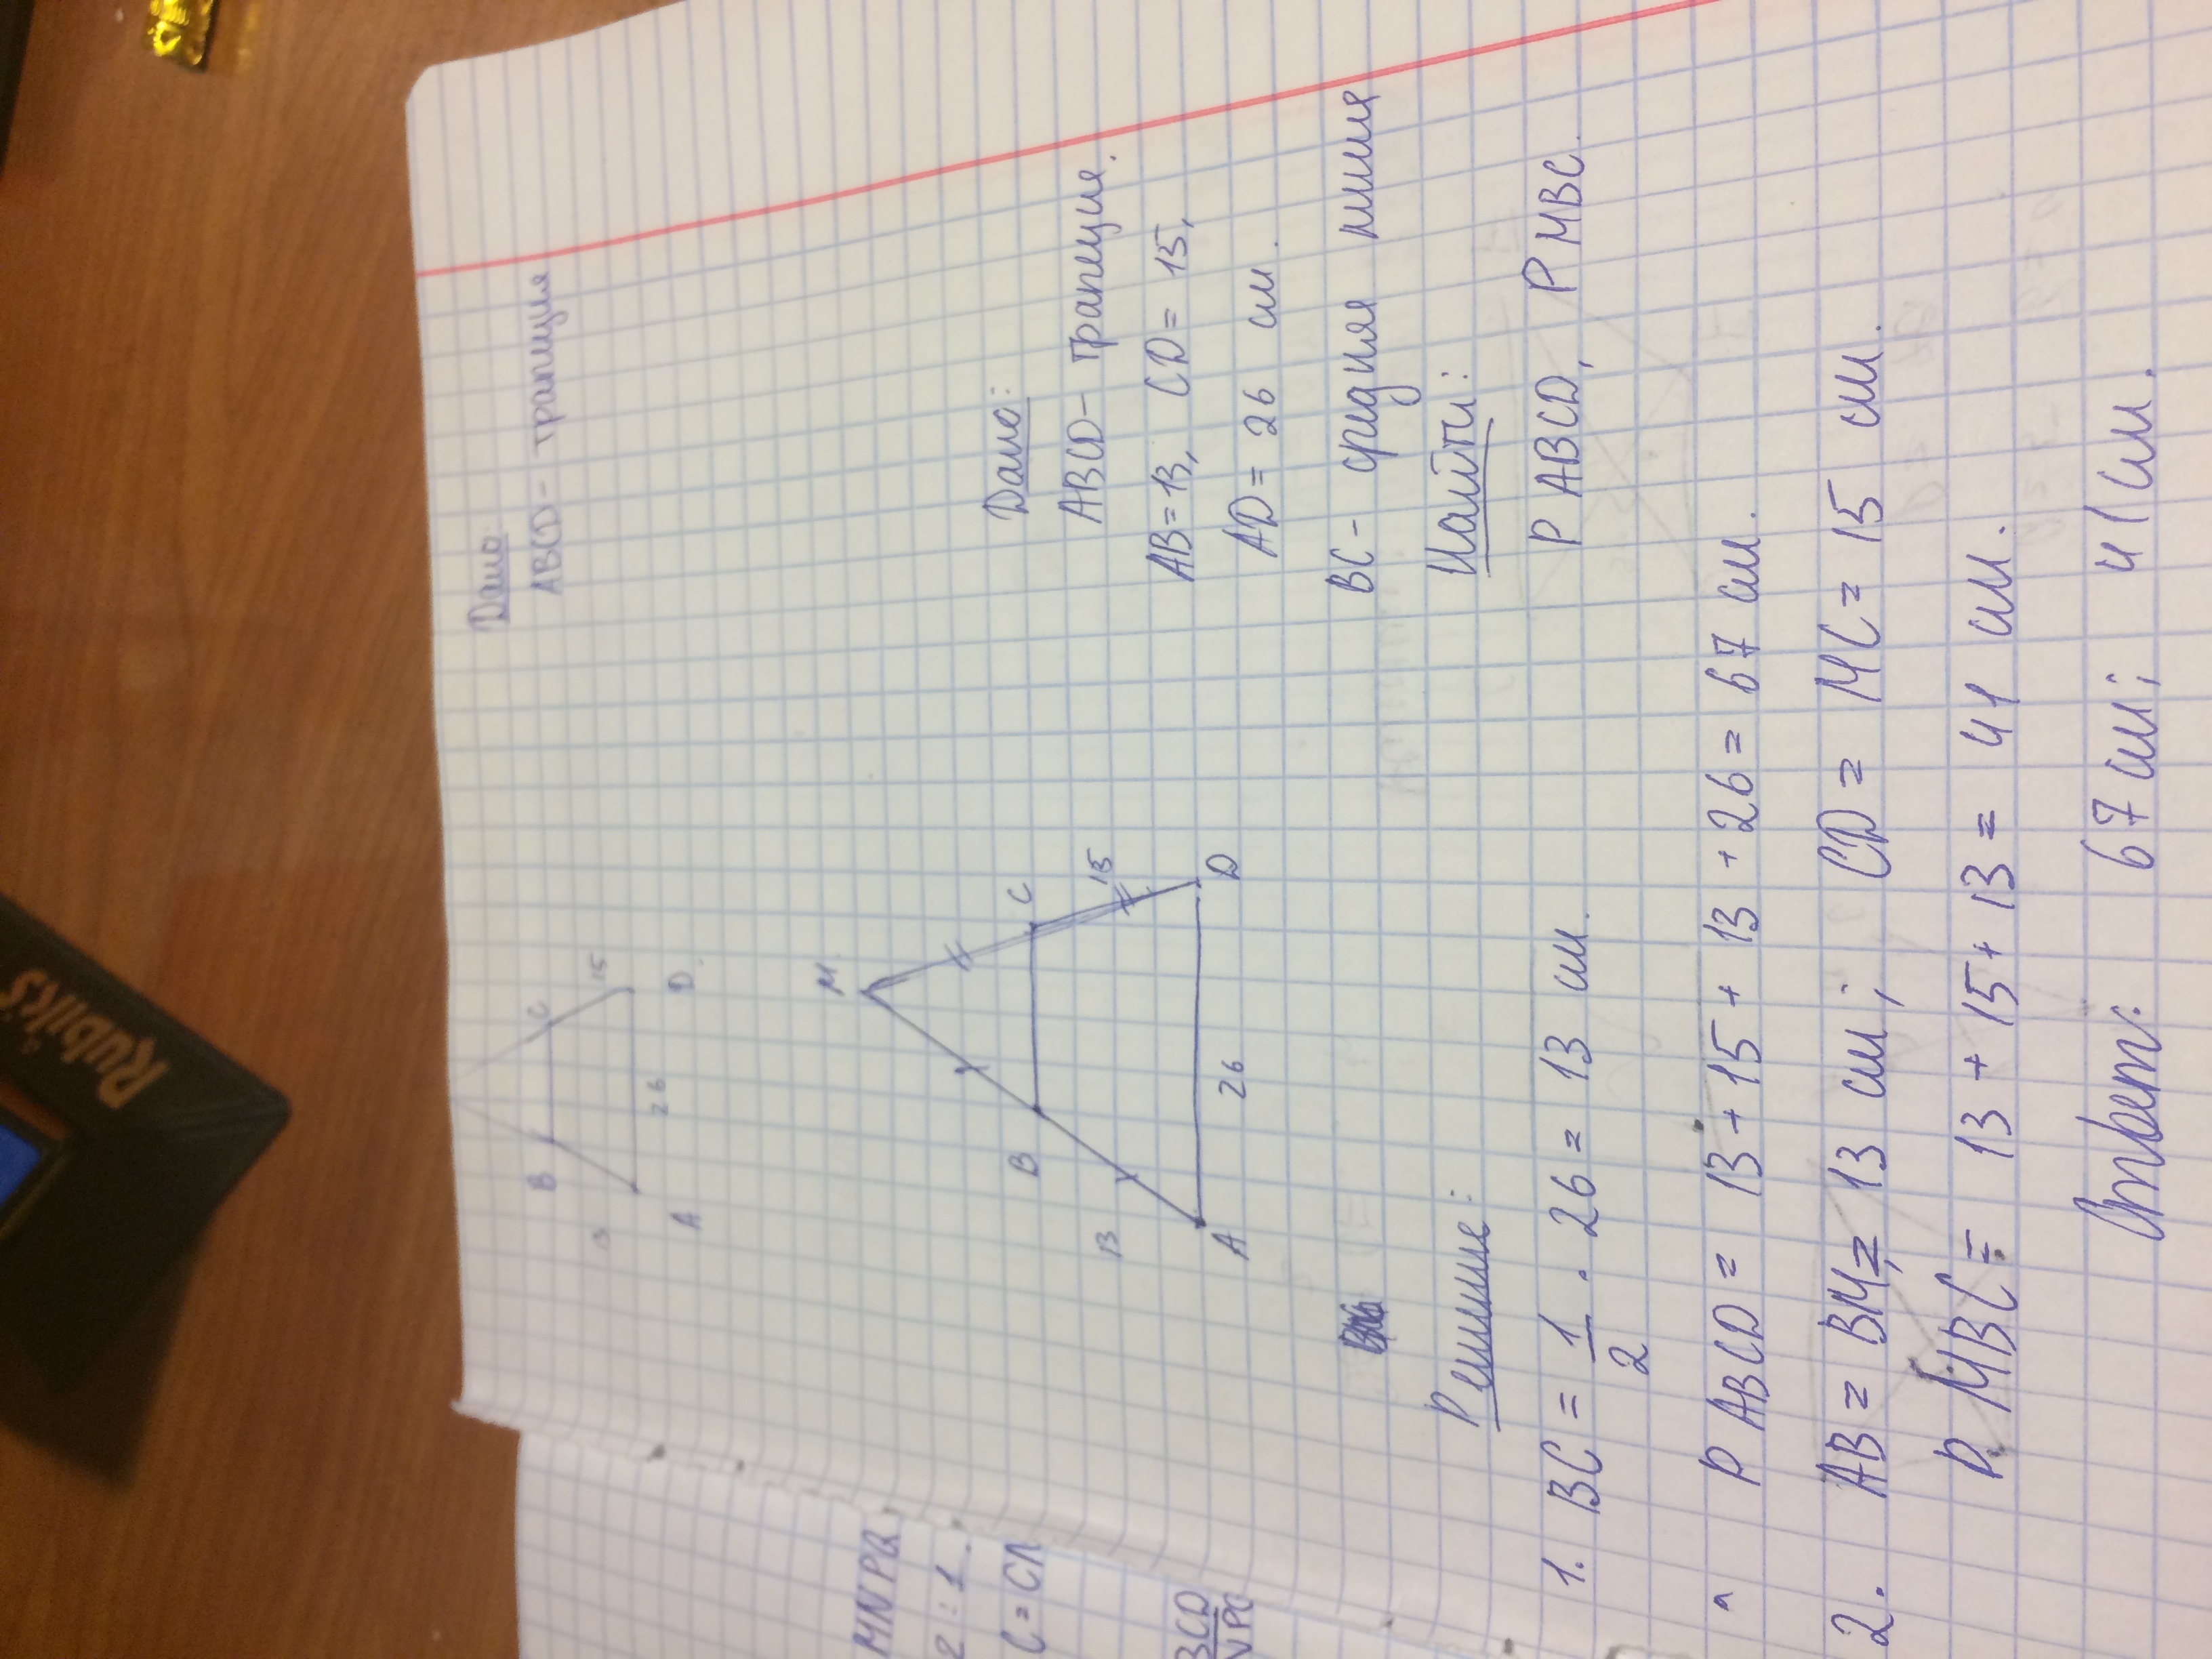 Rubik's
Дано:
ABCD - трапеция
B
C
15
A
26
D.
M.
B
C
13
15
A
26
D
Дано:
ABCD - трапеция.
AB = 13, CD = 15,
AD = 26 см.
BC - средняя линия
Найти:
P ABCD, P MBC.
Решение:
1. BC = 1/2 · 26 = 13 см.
P ABCD = 13 + 15 + 13 + 26 = 67 см.
2. AB = BM = 13 см; CD = MC = 15 см.
P MBC = 13 + 15 + 13 = 41 см.
Ответ: 67 см; 41 см.
MNPQ
2 : 1.
BCD